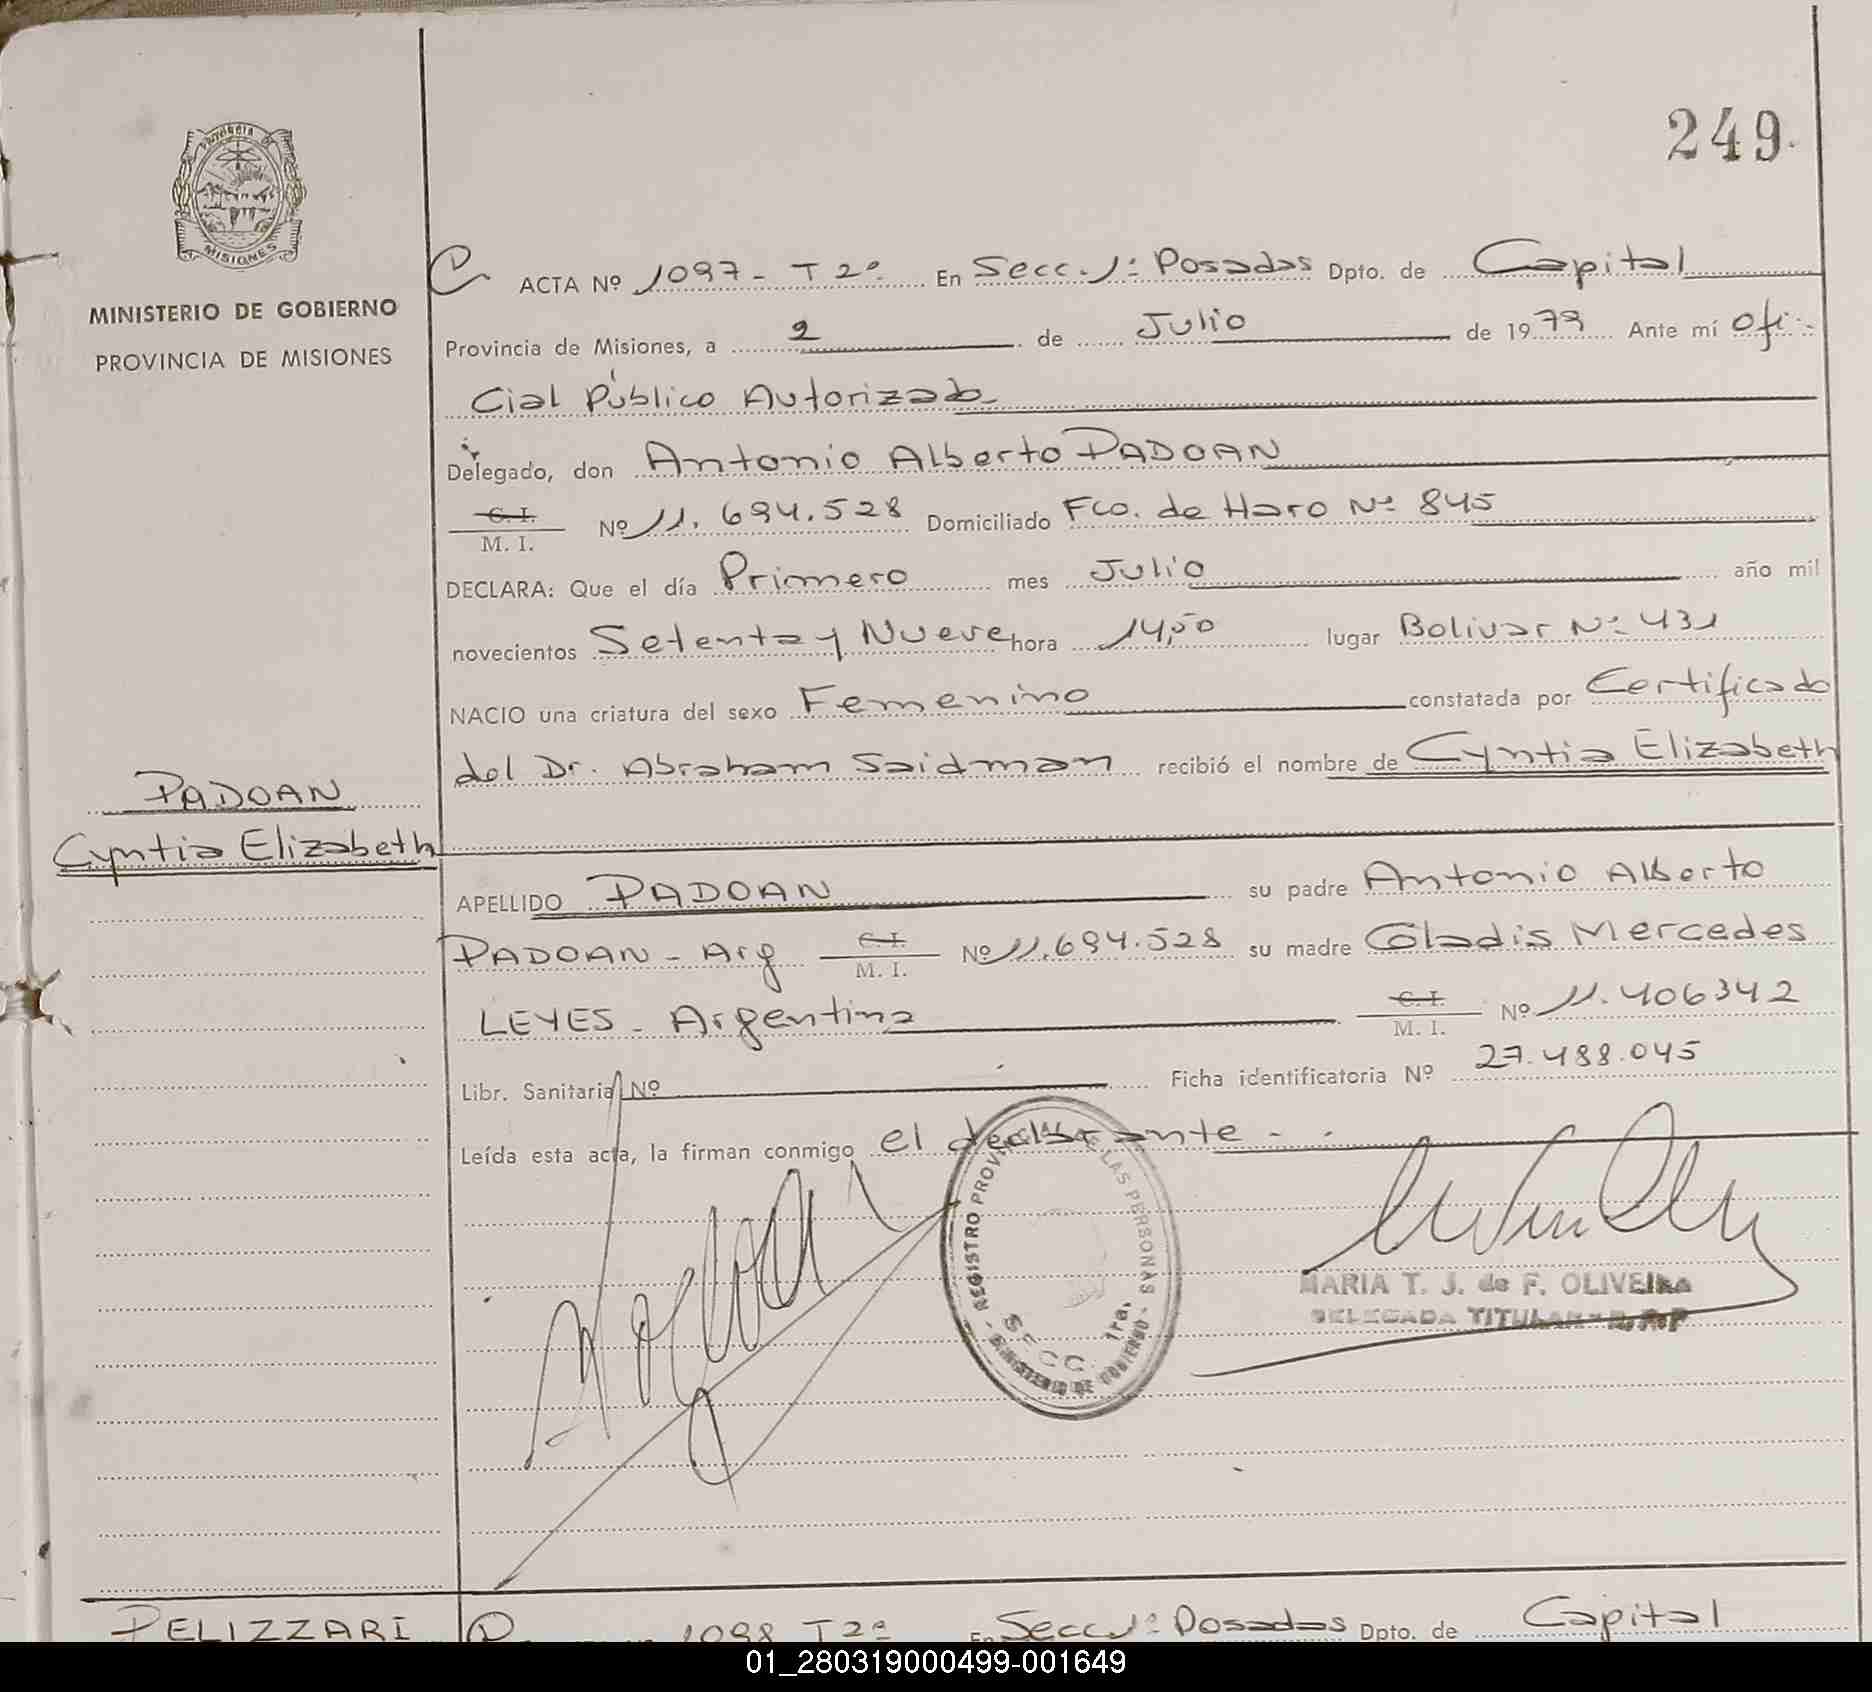 249.
PROVINCIA DE
MISIONES
MINISTERIO DE GOBIERNO
PROVINCIA DE MISIONES
ACTA Nº 1097 - T 2º En Secc. 1ª Posadas Dpto. de Capital
Provincia de Misiones, a 2 de Julio de 1979 Ante mí Ofi-
cial Público Autorizado
Delegado, don Antonio Alberto PADOAN
C. I.
M. I. Nº 11.694.528 Domiciliado Fco. de Haro Nº 845
DECLARA: Que el día Primero mes Julio año mil
novecientos Setenta y Nueve hora 14,50 lugar Bolivar Nº 431
NACIO una criatura del sexo Femenino constatada por Certificado
del Dr. Abraham Saidman recibió el nombre de Cyntia Elizabeth
PADOAN
Cyntia Elizabeth
APELLIDO PADOAN su padre Antonio Alberto
PADOAN - Arg C. I. M. I. Nº 11.694.528 su madre Gladis Mercedes
LEYES - Argentina C. I. M. I. Nº 11.406342
Libr. Sanitaria Nº Ficha identificatoria Nº 27.488.045
Leída esta acta, la firman conmigo el declarante -
REGISTRO PROVINCIAL DE LAS PERSONAS
SECC. 1ra.
- MINISTERIO DE GOBIERNO -
MARIA T. J. de F. OLIVEIRA
DELEGADA TITULAR - R. P. P
PELIZZARI 1098 T 2º En Secc. 1ª Posadas Dpto. de Capital
01_280319000499-001649